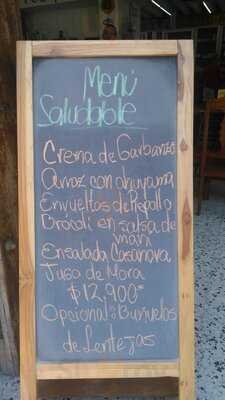 Menú
Saludable
Crema de Garbanzo
Arroz con ahuyama
Envueltos de Repollo
Brócoli en salsa de
maní
Ensalada Casanova
Jugo de Mora
$12,900=
Opcional: Buñuelos
de Lentejas